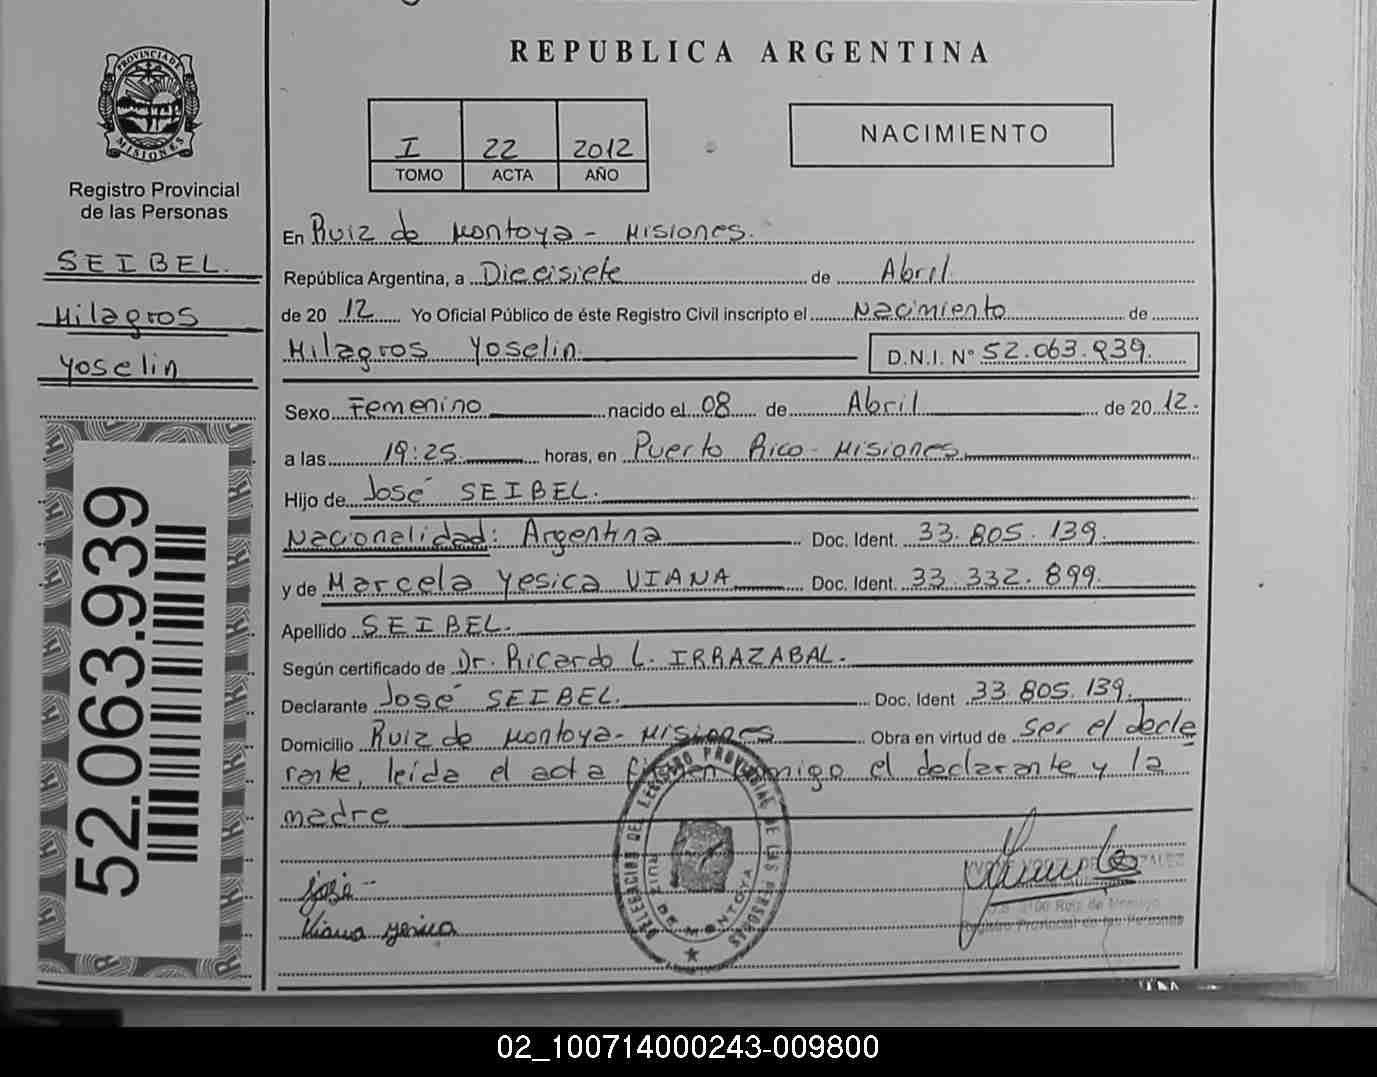 REPUBLICA ARGENTINA
PROVINCIA DE MISIONES
Registro Provincial
de las Personas
SEIBEL.
Milagros
Yoselin
52.063.939
I 22 2012
TOMO ACTA AÑO
NACIMIENTO
En Ruiz de Montoya - Misiones.
República Argentina, a Diecisiete de Abril
de 20 12 Yo Oficial Público de éste Registro Civil inscripto el Nacimiento de
Milagros Yoselin D.N.I. N° 52.063.939.
Sexo Femenino nacido el 08 de Abril de 20 12.
a las 19:25 horas, en Puerto Rico - Misiones.
Hijo de José SEIBEL.
Nacionalidad: Argentina Doc. Ident. 33.805.139.
y de Marcela Yesica VIANA Doc. Ident. 33.332.899.
Apellido SEIBEL.
Según certificado de Dr. Ricardo L. IRRAZABAL.
Declarante José SEIBEL. Doc. Ident 33.805.139.
Domicilio Ruiz de Montoya - Misiones Obra en virtud de ser el decla
rante, leída el acta firman conmigo el declarante y la
madre
José
Viana Yesica
DELEGACION DEL REGISTRO PROVINCIAL DE LAS PERSONAS
RUIZ DE MONTOYA
Registro Provincial de las Personas
02_100714000243-009800